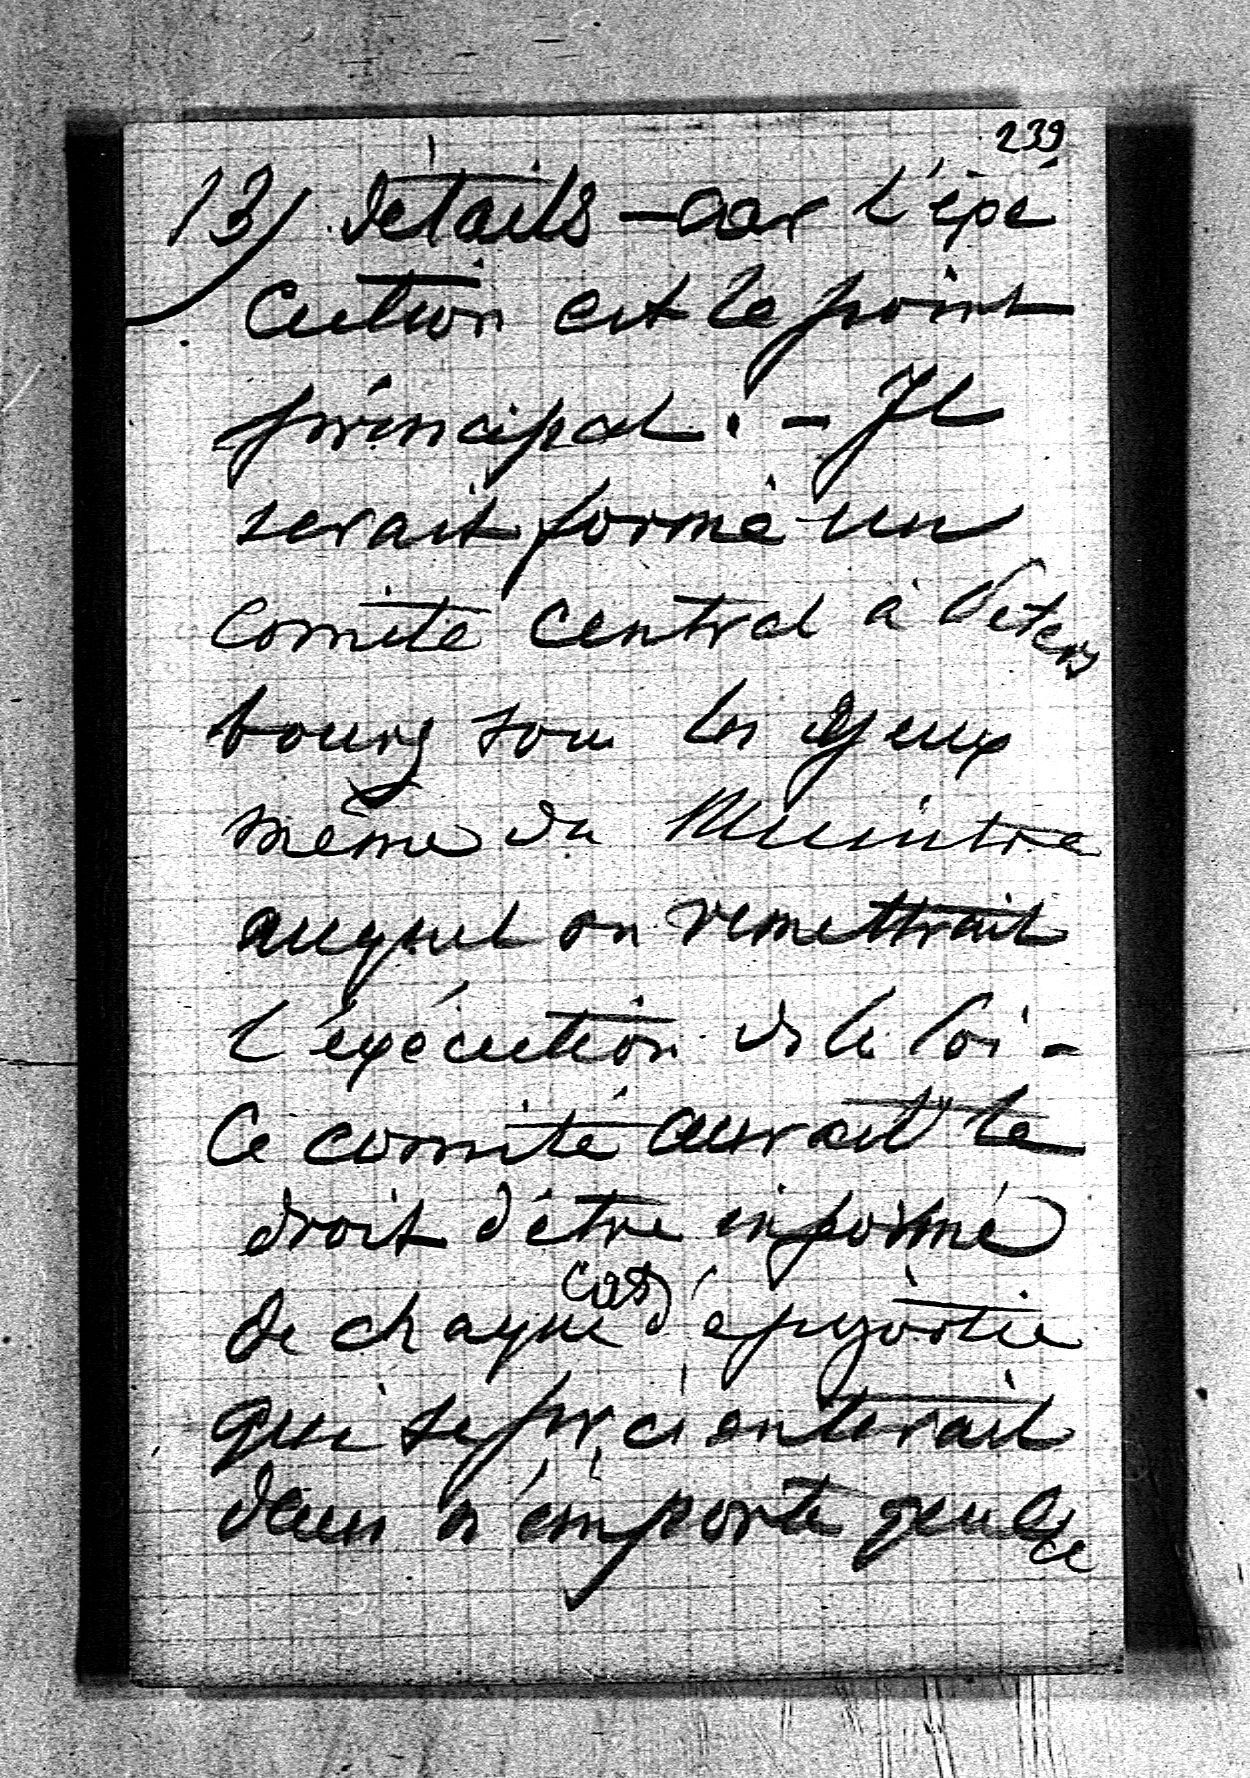 239
13/ détails — car l'exé
cution est le point
principal. — Il
serait formé un
comité central à Peters
bourg sous les yeux
même du Ministre
auquel on remettrait
l'exécution de la loi —
Ce comité aurait le
droit d'être informé
de chaque cas d'épizootie
qui se présenterait
dans n'importe quelle